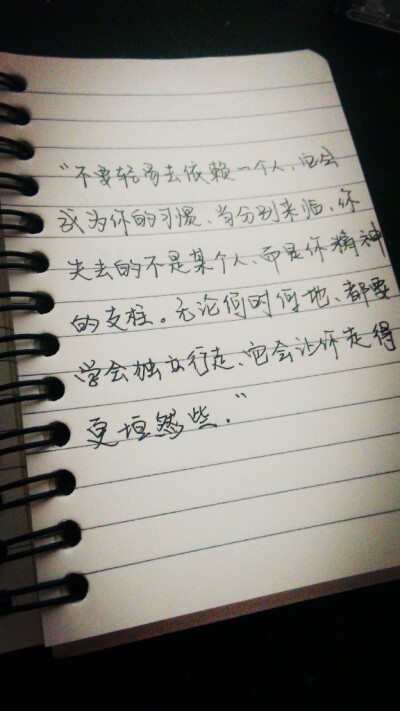 “不要轻易去依赖一个人、它会
成为你的习惯、当分别来临、你
失去的不是某个人、而是你精神
的支柱。无论何时何地、都要
学会独立行走、它会让你走得
更坦然些.”